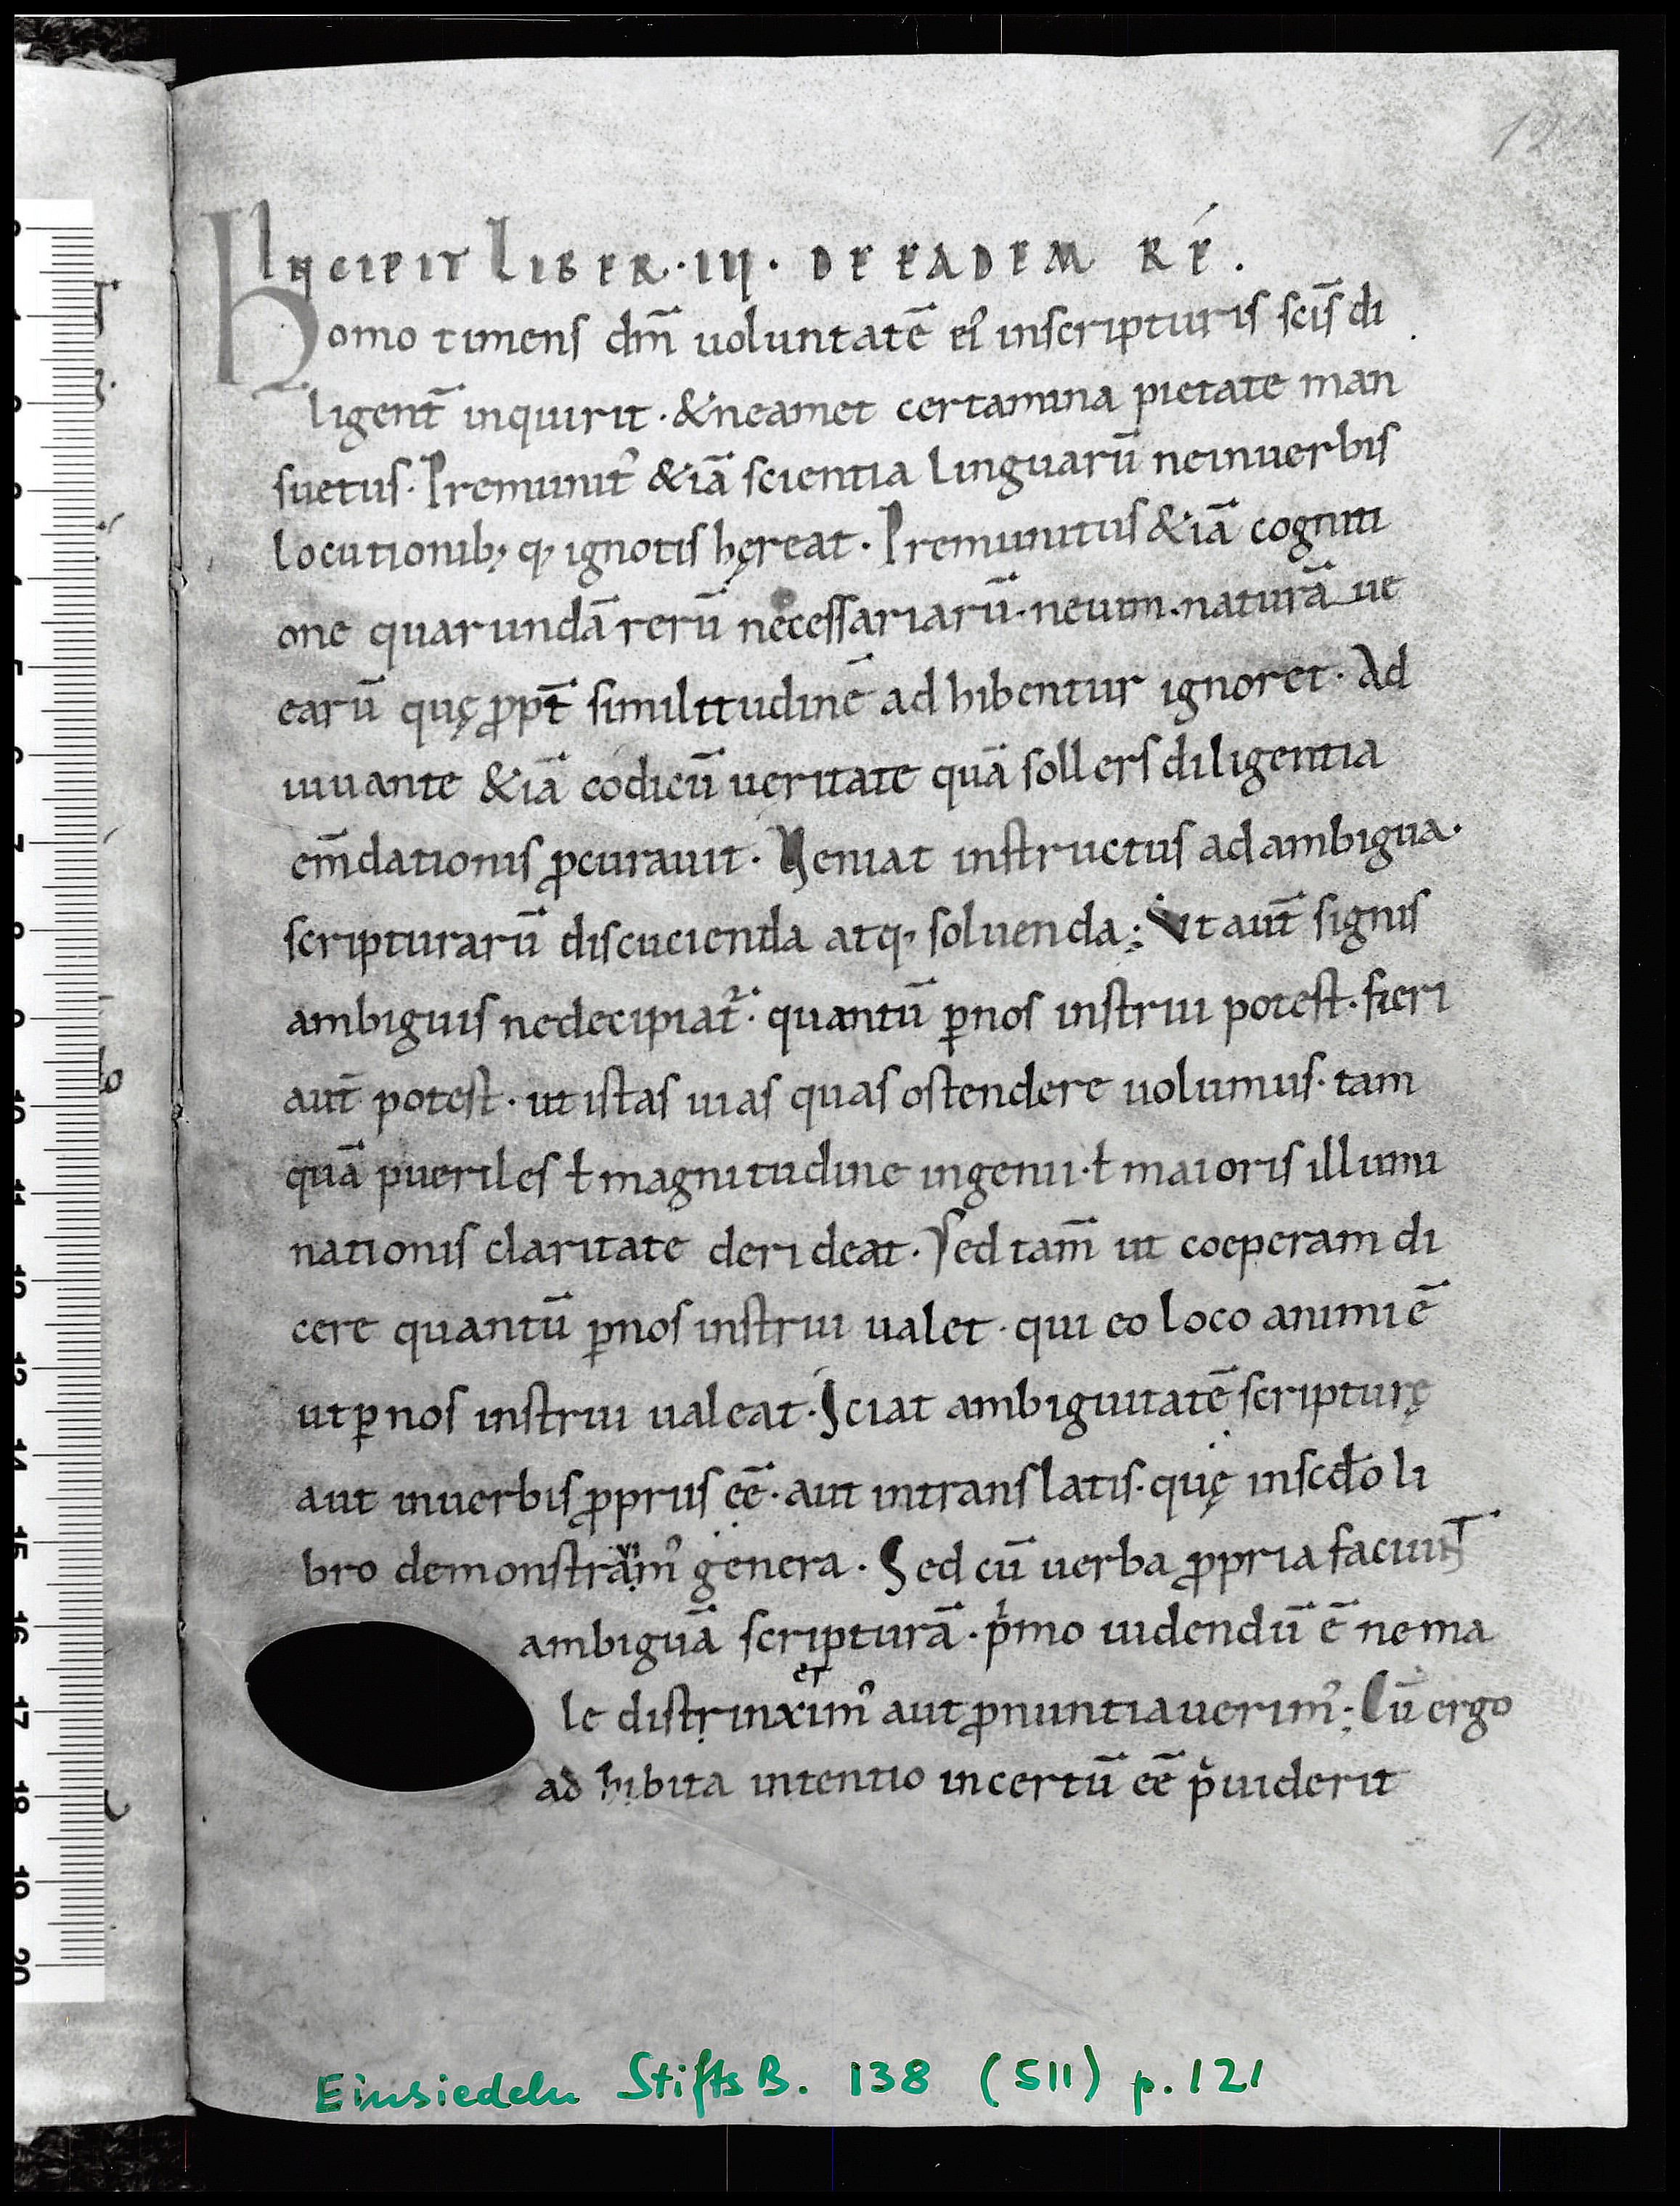 12
INCIPIT LIBER·III· DE EADEM RÉ.
Homo timens dm̄ uoluntatē ei᾽ inscripturis scīs di
ligent̄ inquirit · &neamet certamina pietate man
suetus· Premunit᾽ &iā scientia linguarū neinuerbis
locutionib; q; ignotis hęreat · Premunitus &iā cogniti
one quarundā rerū necessariarū· neuim· naturā ue
earū quę ꝓpt̄ similitudinē adhibentur ignoret · Ad
iuuante &iā codicū ueritate quā sollers diligentia
em̄dationis ꝓcurauit · Ueniat instructus adambigua·
scripturarū discucienda atq; soluenda; Ut aut̄ signis
ambiguis nedecipiat᾽· quantū ꝑnos instrui potest· fieri
aut̄ potest · ut istas uias quas ostendere uolumus· tam
quā pueriles ł magnitudine ingenii· ł maioris illumi
nationis claritate derideat· Sed tam̄ ut coeperam di
cere quantū ꝑnos instrui ualet · qui eo loco animi ē
ut ꝑ nos instrui ualeat· Sciat ambiguitatē scripturę
aut inuerbis ꝓpriis eē· aut intranslatis· quę inscdo li
bro demonstrauim᾽ genera · Sed cū uerba ꝓpria faciunt
ambiguā scripturā · pͥmo uidendū ē ne ma
et
le distrinxim᾽ aut ꝓnuntiauerim᾽; Cū ergo
adhibita intentio incertū eē p̄uiderit
Einsiedeln StiftsB. 138 (511) p. 121
0
1
2
3
4
5
6
7
8
9
10
11
12
13
14
15
16
17
18
19
20